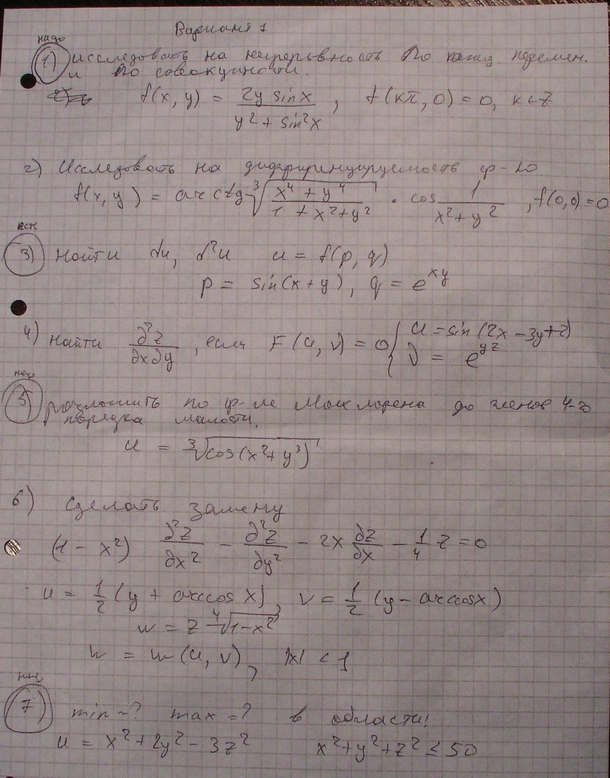 Вариант 1
надо
1) исследовать на непрерывность по кажд перемен.
и по совокупности.
f(x, y) = 2y sin x / (y² + sin² x) , f(кπ, 0) = 0, к ∈ Z
2) Исследовать на дифференцируемость ф-ю
f(x, y) = arcctg ∛((x⁴ + y⁴) / (1 + x² + y²)) · cos 1/(x² + y²) , f(0,0) = 0
3) Найти du, d²u u = f(p, q)
p = sin(x + y), q = e^(xy)
4) Найти ∂²z/∂x∂y , если F(u, v) = 0 { u = sin(2x - 3y + z)
v = e^(yz)
надо
5) разложить по ф-ле Маклорена до членов 4-го
порядка малости.
u = ∛(cos(x² + y³))
6) Сделать замену
(1 - x²) ∂²z/∂x² - ∂²z/∂y² - 2x ∂z/∂x - 1/4 z = 0
u = 1/2 (y + arccos x), v = 1/2 (y - arccos x)
w = z ⁴√(1 - x²)
w = w(u, v), |x| < 1
надо
7) min - ? max = ? в области!
u = x² + 2y² - 3z² x² + y² + z² ≤ 50